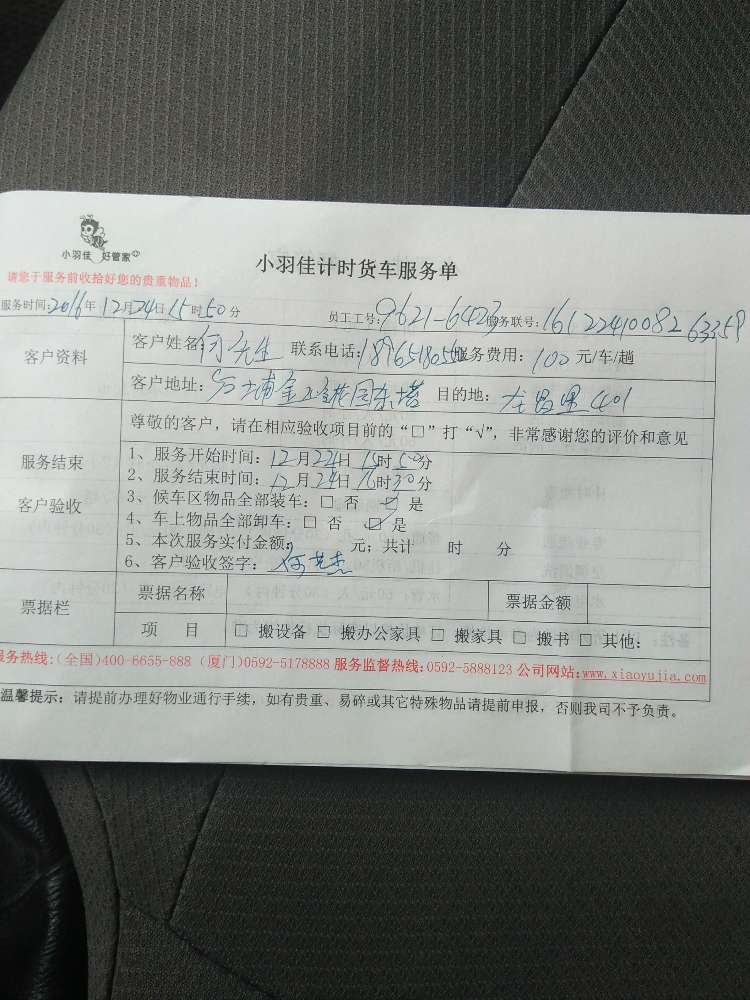 小羽佳 好管家
小羽佳计时货车服务单
请您于服务前收拾好您的贵重物品！
服务时间:2016年12月24日15时50分 员工工号:9621-6423 服务联号:161224100826 63359
客户资料
客户姓名 何先生 联系电话: 服务费用: 100 元/车/趟
客户地址: 金 花园东塔 目的地: 龙昌里401
尊敬的客户，请在相应验收项目前的“□”打“√”，非常感谢您的评价和意见
服务结束
客户验收
1、服务开始时间：12月24日15时50分
2、服务结束时间：12月24日16时30分
3、候车区物品全部装车：□ 否 ☑ 是
4、车上物品全部卸车：□ 否 ☑ 是
5、本次服务实付金额： 元；共计 时 分
6、客户验收签字：
票据栏
票据名称 票据金额
项 目 □ 搬设备 □ 搬办公家具 □ 搬家具 □ 搬书 □ 其他：
服务热线:(全国)400-6655-888 (厦门)0592-5178888 服务监督热线:0592-5888123 公司网站:www.xiaoyujia.com
温馨提示：请提前办理好物业通行手续，如有贵重、易碎或其它特殊物品请提前申报，否则我司不予负责。